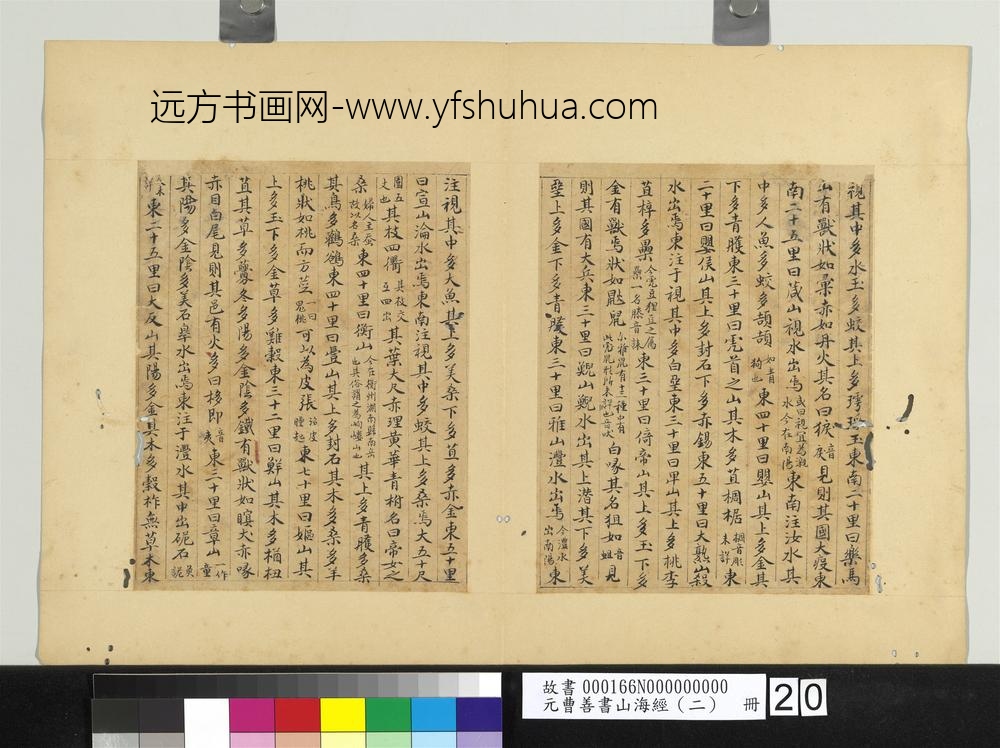 远方书画网-www.yfshuhua.com
視其中多水玉多蛟其上多㻬琈玉東南二十里曰樂馬
山有獸狀如彙赤如丹火其名曰㺉音戾見則其國大疫東
南二十五里曰葴山視水出焉或曰視宜為瀙水今在南陽東南注汝水其
中多人魚多蛟多頡頡如青狗也東四十里曰嬰山其上多金其
下多青雘東三十里曰虎首之山其木多苴椆椐椆音彫未詳東
二十里曰嬰侯山其上多封石下多赤錫東五十里曰大孰山殺
水出焉東注于視其中多白堊東三十里曰卑山其上多桃李
苴梓多櫐今虎豆狸豆之屬櫐一名縢音誄東三十里曰倚帝山其上多玉下多
金有獸焉狀如鼣鼠尒雅鼠有十三種中有此鼠形所未詳也音吠白喙其名狙如音蛆見
則其國有大兵東三十里曰鯢山鯢水出其上潛其下多美
堊上多金下多青雘東三十里曰雅山澧水出焉今澧水出南陽
注視其中多大魚其上多美桑下多苴多赤金東五十里
曰宣山淪水出焉東南注視其中多蛟其上多桑焉大五十尺
圍五丈也其枝四衢其枝交互四出其葉大尺赤理黃華青柎名曰帝女之
桑婦人主蚕故以名桑東四十里曰衡山今在衡州湘南縣南岳也其俗猶之為岣嶁山也其上多青雘多桑
其鳥多鸜鵒東四十里曰豊山其上多封石其木多桑多羊
桃狀如桃而方莖一曰鬼桃可以為皮張治皮腫起東七十里曰嫗山其
上多玉下多金草多雞穀東三十二里曰鮮山其木多楢杻
苴其草多虋冬多陽多金陰多鐵有獸狀如瞑犬赤喙
赤目白尾見則其邑有火多曰㺄即音夷東三十里曰章山一作童
其陽多金陰多美石皋水出焉東注于澧水其中出砨石
東二十五里曰大反山其陽多金其木多穀柞無草木東
故書 000166N000000000
元曹善書山海經(二) 冊 20